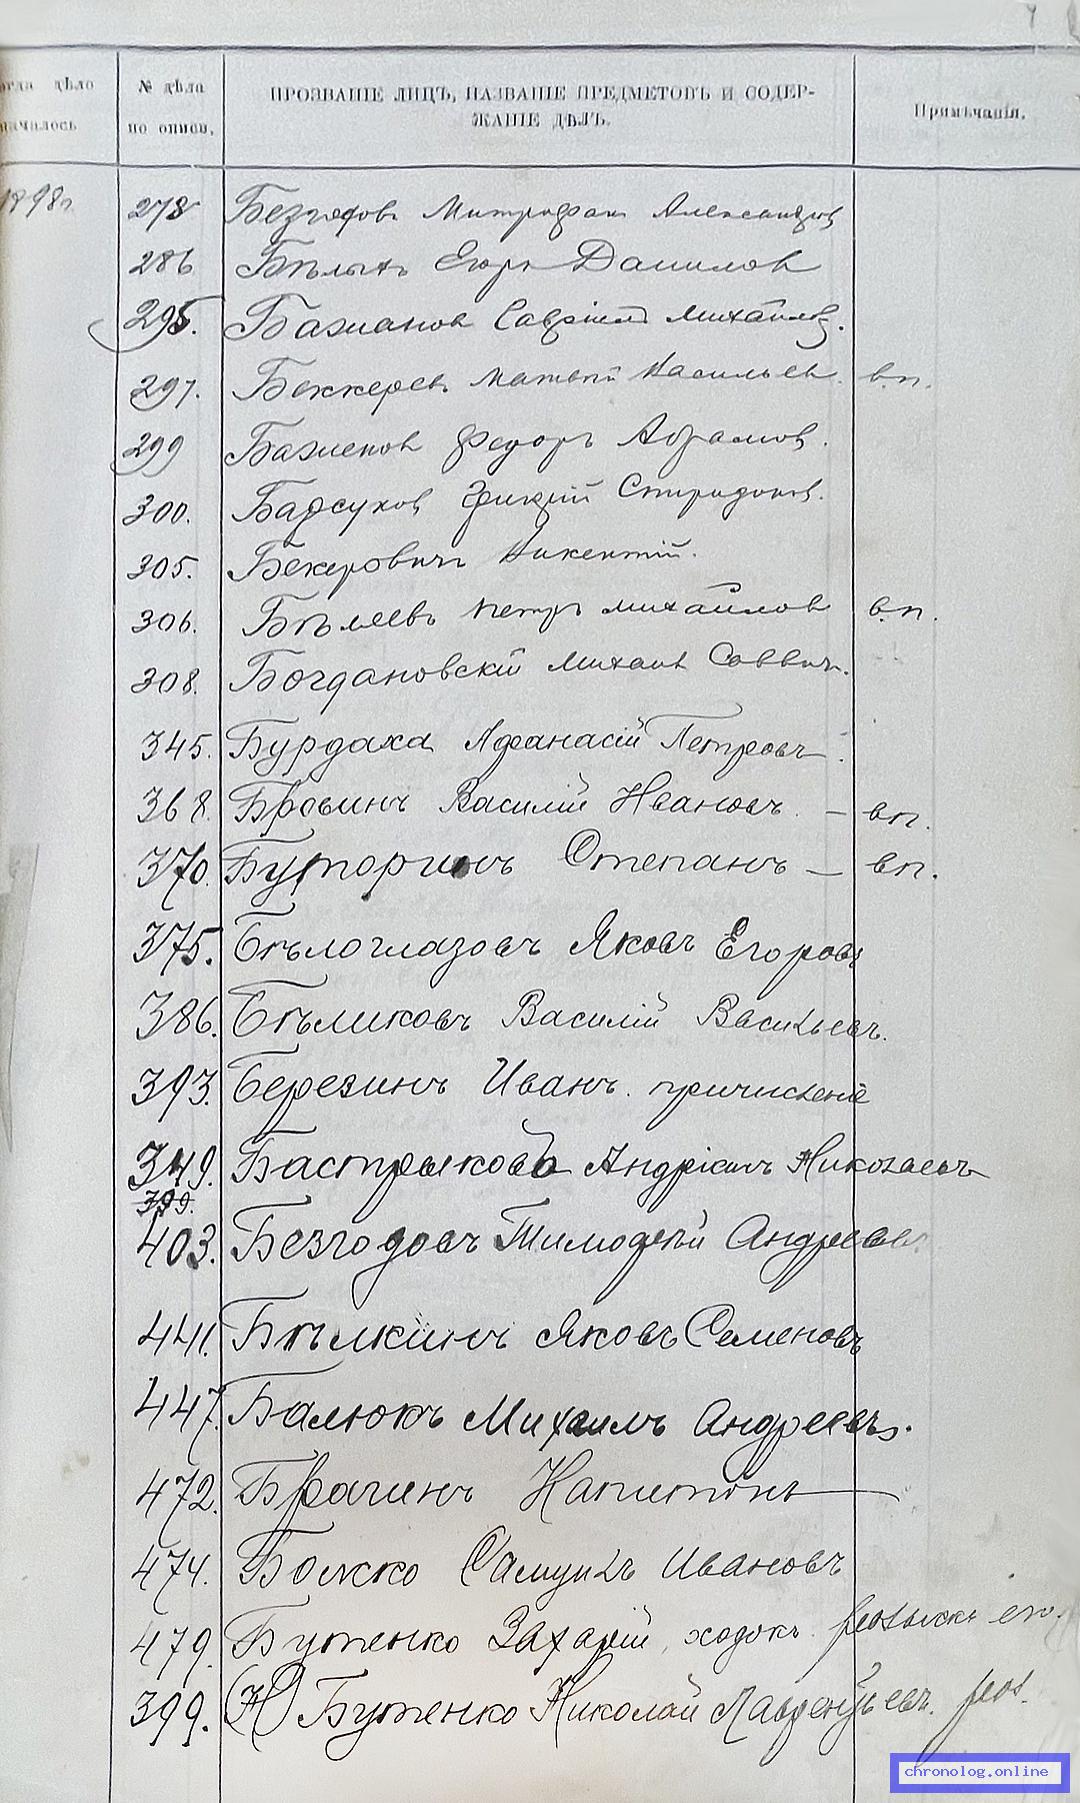 когда дѣло началось
№ дѣла по описи.
ПРОЗВАНІЕ ЛИЦЪ, НАЗВАНІЕ ПРЕДМЕТОВЪ И СОДЕР-
ЖАНІЕ ДѢЛЪ.
Примѣчанія.
1898г. 278 Митрофан Александров
286 Бѣлыхъ Егоръ Данилов
295. Бажанов Гавріилъ Михайлов.
297. Беккерев Матвѣй Васильев. в.п.
299 Баженов Федоръ Абрамов.
300. Барсуков Спиридонов.
305. Бекеровичъ Викентій.
306. Бѣляевъ Петръ Михайлов в.п.
308. Богдановскій Михаил Саввич.
345. Бурдаха Афанасій Петровъ.
368. Василій Ивановъ. — вп.
370. Буторинъ Степанъ — вп.
375. Бѣлоглазовъ Яковъ Егоровъ
386. Бѣликовъ Василій Васильевъ.
393. Березинъ Иванъ. причисленіе
349. Бастрыковъ Андріанъ Николаевъ
399.
403. Безгодовъ Тимофей Андреевъ.
441. Бѣлкинъ Яковъ Семеновъ
447. Балюкъ Михаилъ Андреевъ.
472. Брагинъ Капитонъ
474. Божко Самуилъ Ивановъ
479. Бутенко Захарій, ходокъ. розыскъ его.
399. (Н) Бутенко Николай Лаврентьевъ. роз.
chronolog.online